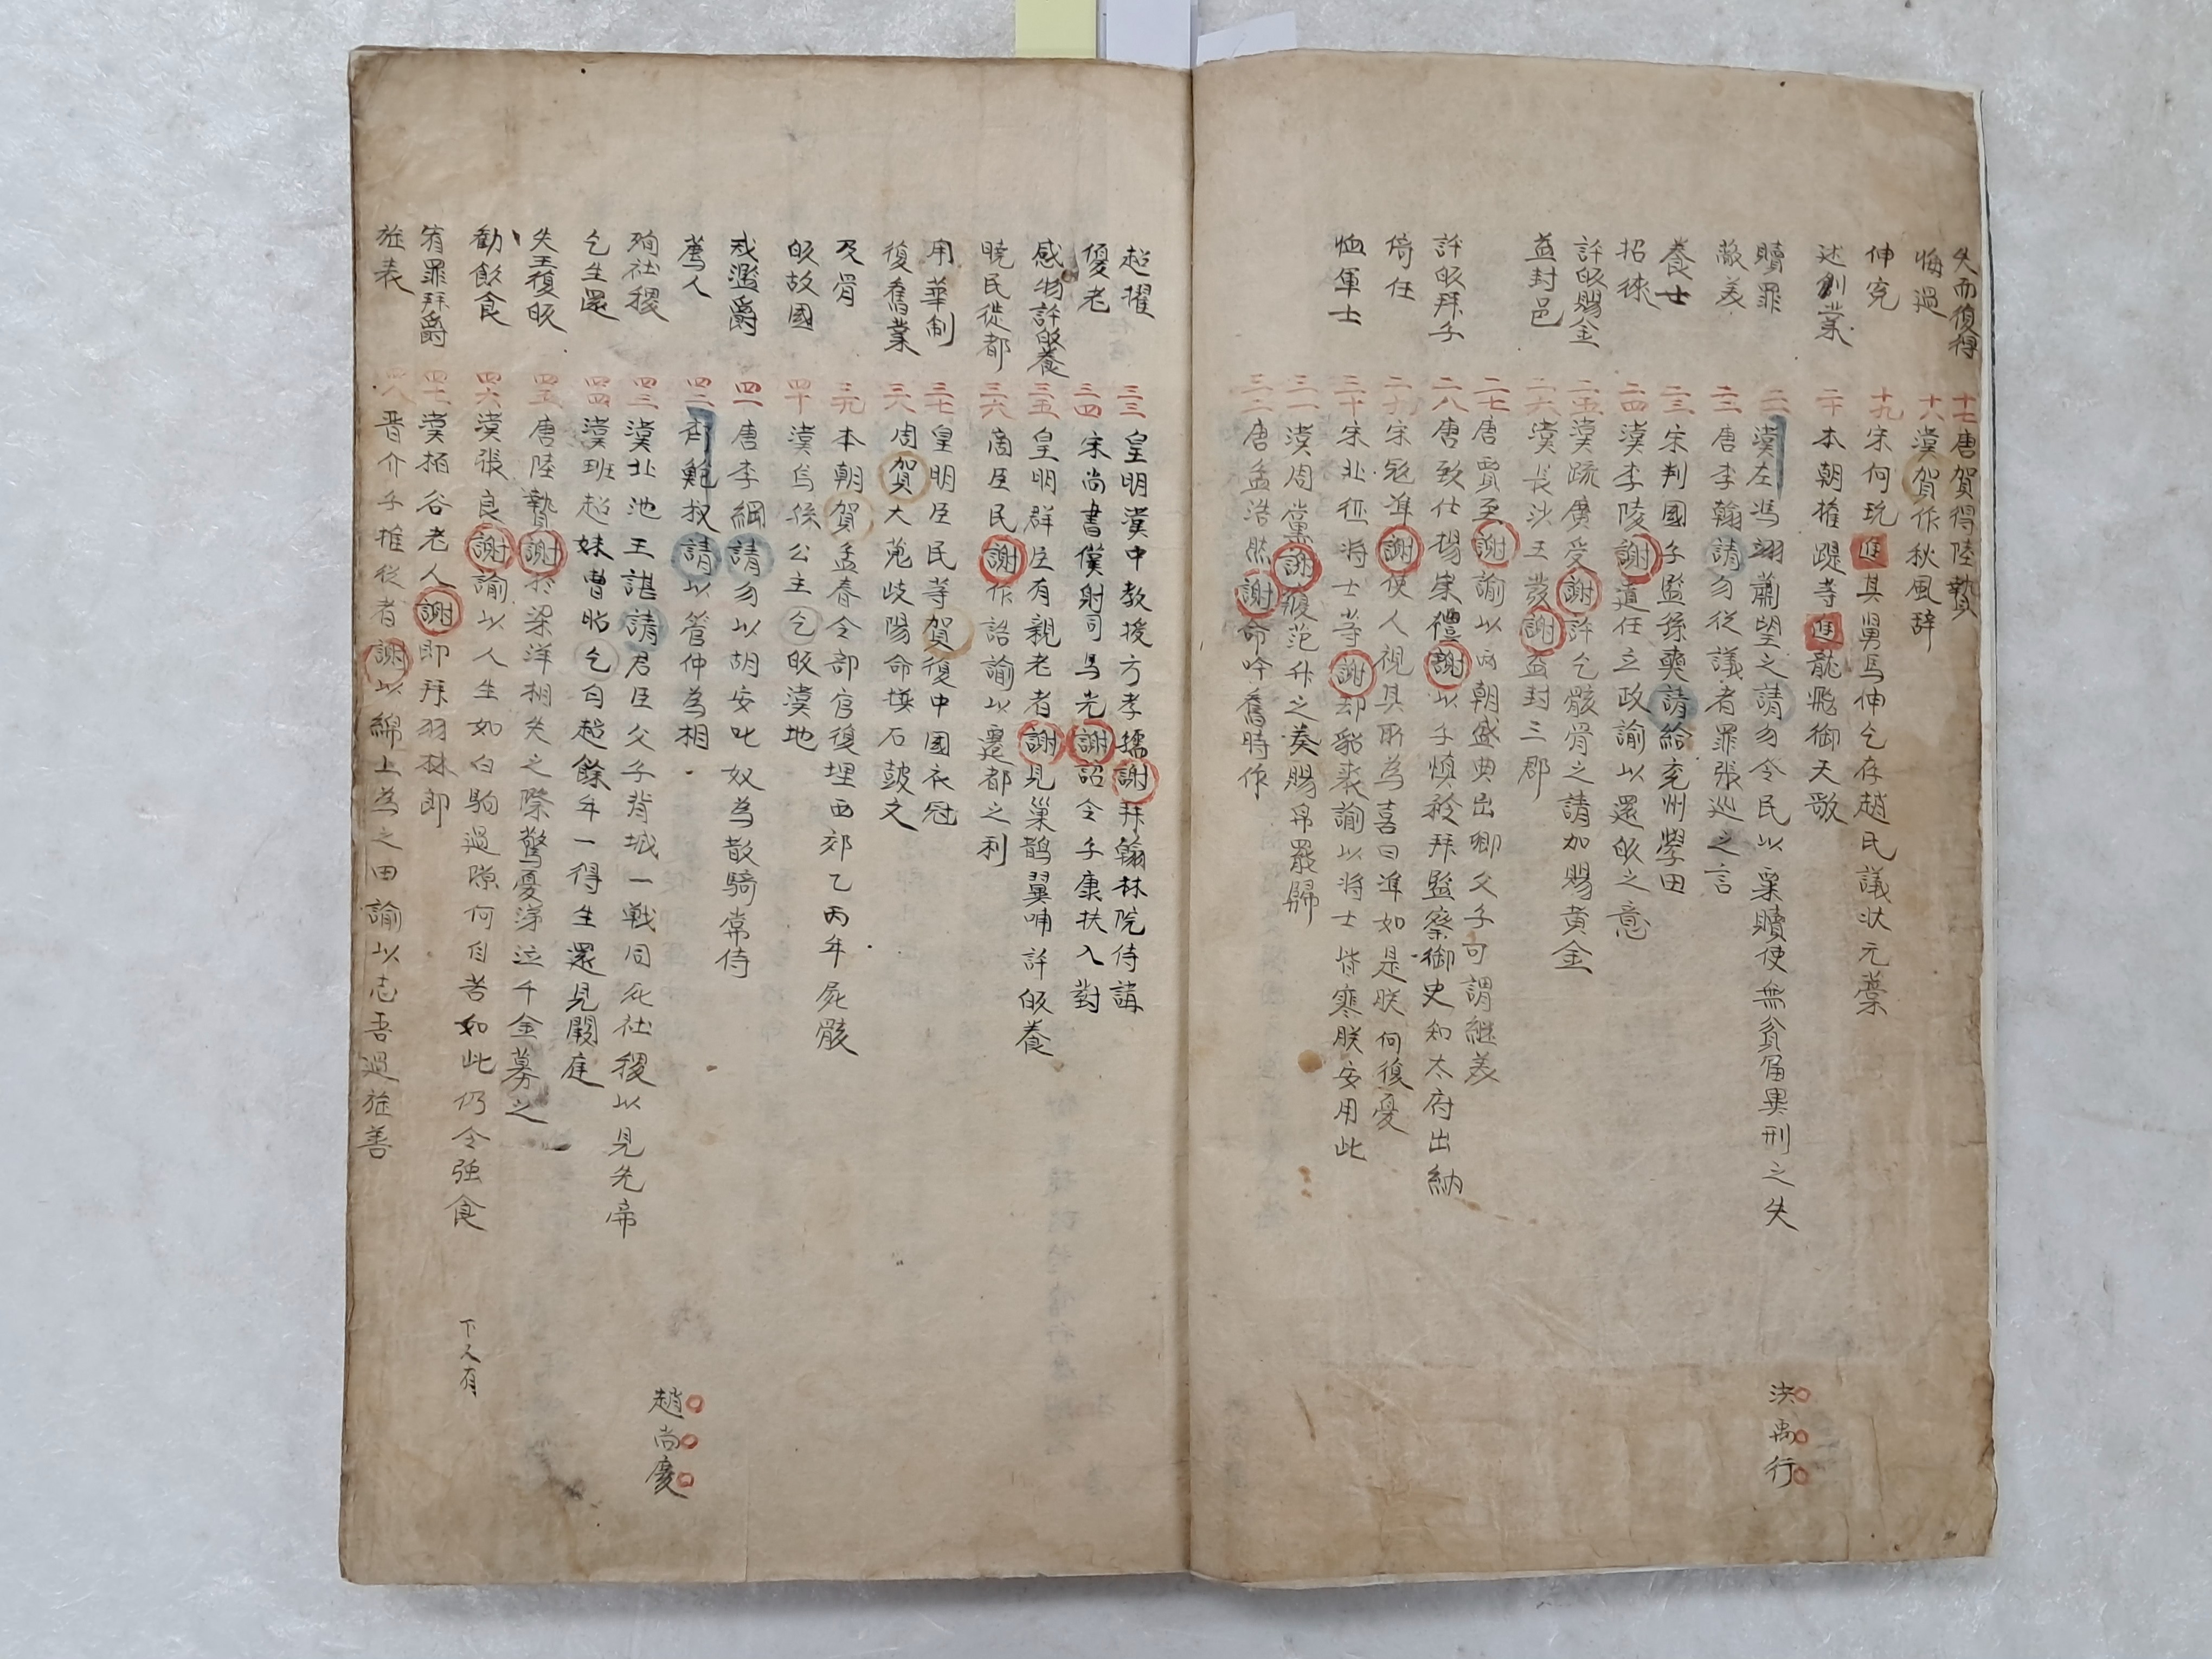 失而復得 十七 唐賀得陸贄
悔過 十八 漢賀作秋風辞
伸冤 十九 宋何玩進其舅馬伸乞存趙氏議状元藁
述創業 二十 本朝権踶等進龍飛御天歌
贖罪 二一 漢左馮翊蕭望之請勿令民以粟贖使無貧冨異刑之失
敵美 二二 唐李翰請勿從議者罪張巡之言
養士 二三 宋判國子監孫奭請給兖州學田
招徠 二四 漢李陵謝道任立政諭以還皈之意
許皈賜金 二五 漢疏廣受謝許乞骸骨之請加賜黄金
益封邑 二六 漢長沙王發謝益封三郡
二七 唐賈至謝諭以両朝盛典出卿父子可謂継美
許皈拜子 二八 唐致仕楊崇禮謝以子慎矜拜監察御史知太府出納
倚任 二九 宋冦準謝使人視其所為喜曰準如是朕何復憂
恤軍士 三十 宋北征将士等謝却貂裘諭以将士皆寒朕安用此
三一 漢周黨謝寢范升之奏賜帛罷歸
三二 唐孟浩然謝命吟舊時作
洪禹行
超擢 三三 皇明漢中教授方孝孺謝拜翰林院侍講
優老 三四 宋尚書僕射司馬光謝詔令子康扶入對
感物許皈養 三五 皇明群臣有親老者謝見巢鵲翼哺許皈養
曉民徙都 三六 商臣民謝作誥諭以遷都之利
用華制 三七 皇明臣民等賀復中國衣冠
復舊業 三八 周賀大蒐岐陽命鐫石皷文
及骨 三九 本朝賀孟春令部官復埋西郊乙丙年死骸
皈故國 四十 漢烏孫公主乞皈漢地
戒濫爵 四一 唐李綱請勿以胡安叱奴為散騎常侍
薦人 四二 齊鮑叔請以管仲為相
殉社稷 四三 漢北池王諶請君臣父子背城一戦同死社稷以見先帝
乞生還 四四 漢班超妹曹昭乞匄超餘年一得生還見闕庭
失王復皈 四五 唐陸贄謝於梁洋相失之際驚憂涕泣千金募之
勸飲食 四六 漢張良謝諭以人生如白駒過隙何自苦如此仍令强食
宥罪拜爵 四七 漢栢谷老人謝即拜羽林郎
旌表 四八 晋介子推從者謝以綿上為之田諭以志吾過旌善
下又有
趙尚慶